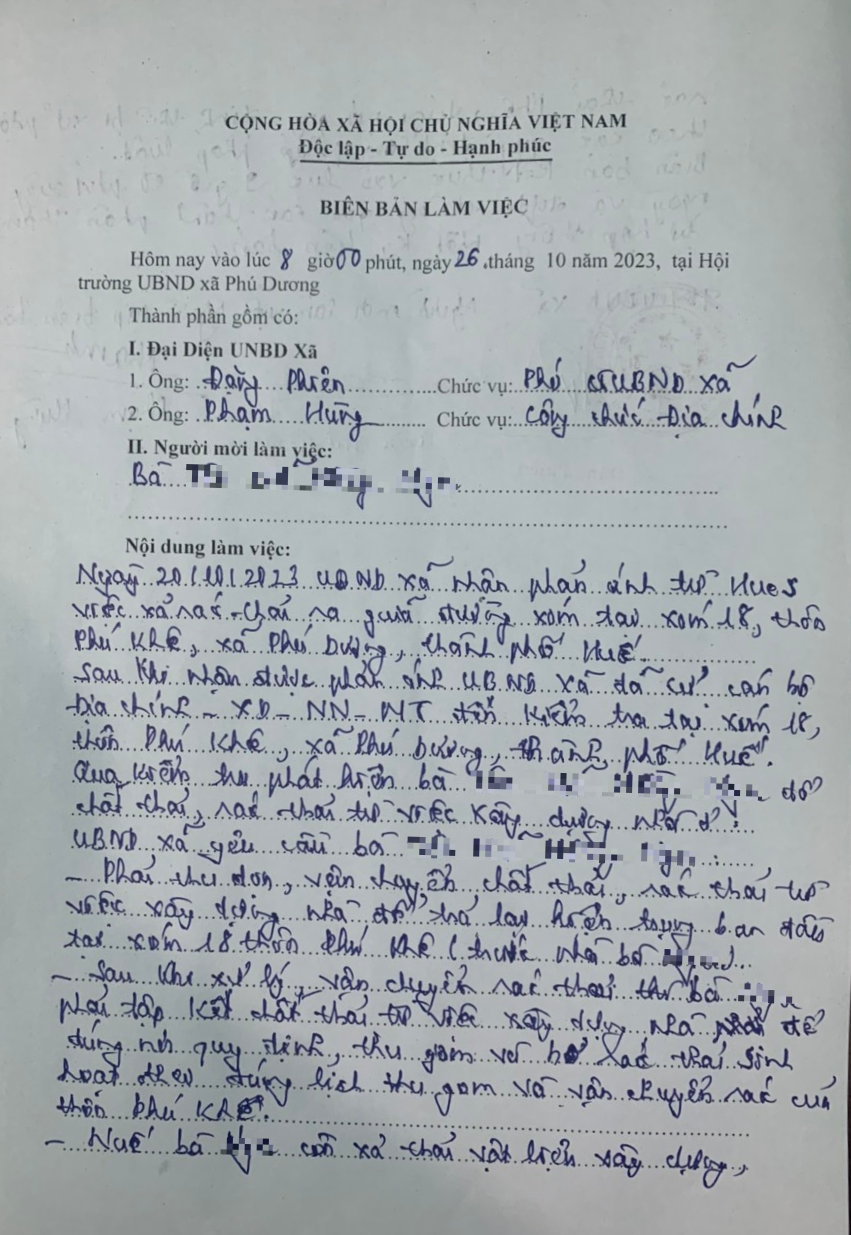 CỘNG HÒA XÃ HỘI CHỦ NGHĨA VIỆT NAM
Độc lập - Tự do - Hạnh phúc
BIÊN BẢN LÀM VIỆC
Hôm nay vào lúc 8 giờ 00 phút, ngày 26 tháng 10 năm 2023, tại Hội
trường UBND xã Phú Dương
Thành phần gồm có:
I. Đại Diện UNBD Xã
1. Ông: Đặng Phiên Chức vụ: Phó CTUBND xã
2. Ông: Phạm Hùng Chức vụ: Công chức Địa chính
II. Người mời làm việc:
Bà
Nội dung làm việc:
Ngày 20/10/2023 UBND xã nhận phản ánh từ HueS
việc xả rác thải ra giữa đường xóm tại xóm 18, thôn
Phú Khê, xã Phú Dương, thành phố Huế.
Sau khi nhận được phản ánh UBND xã đã cử cán bộ
Địa chính - XD - NN - MT đến kiểm tra tại xóm 18,
thôn Phú Khê, xã Phú Dương, thành phố Huế.
Qua kiểm tra phát hiện bà đổ
chất thải, rác thải từ việc xây dựng nhà ở.
UBND xã yêu cầu bà :
- Phải thu dọn, vận chuyển chất thải, rác thải từ
việc xây dựng nhà để trả lại hiện trạng ban đầu
tại xóm 18 thôn Phú Khê (trước nhà bà )
- Sau khi xử lý, vận chuyển rác thải thì bà
phải tập kết chất thải từ việc xây dựng nhà để
đúng nơi quy định, thu gom và bỏ rác thải sinh
hoạt theo đúng lịch thu gom và vận chuyển rác của
thôn Phú Khê.
- Nếu bà còn xả thải vật liệu xây dựng,